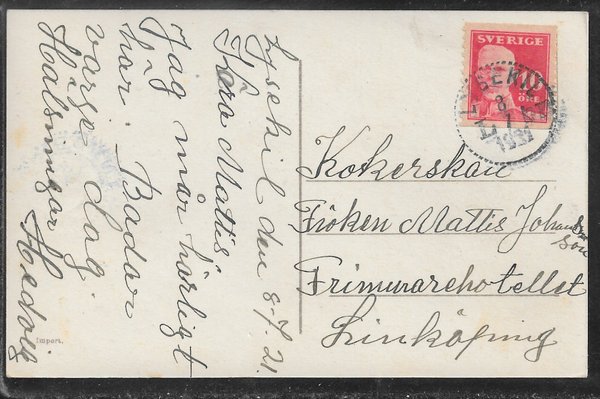 Lysekil den 8-7. 21.
Kära Mattis!
Jag mår härligt
här. Badar
varje dag
Hälsningar Hedvig
SVERIGE
ÖRE
LYSEKIL
8 7
Kokerskan
Fröken Mattis Johansson
Frimurarehotellet
Linköping
Import.